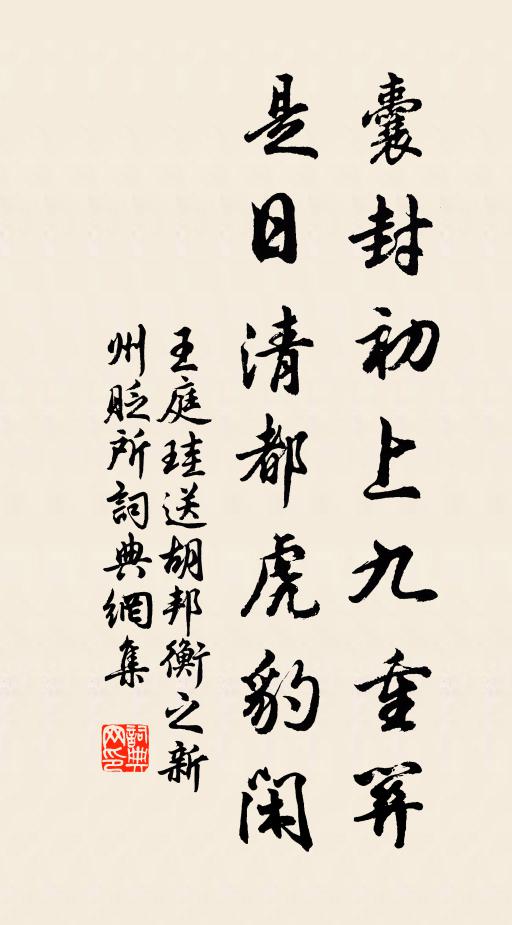 囊封初上九重關
是日清都虎豹閑
王庭珪送胡邦衡之新
州貶所詞典網集
詞典網印